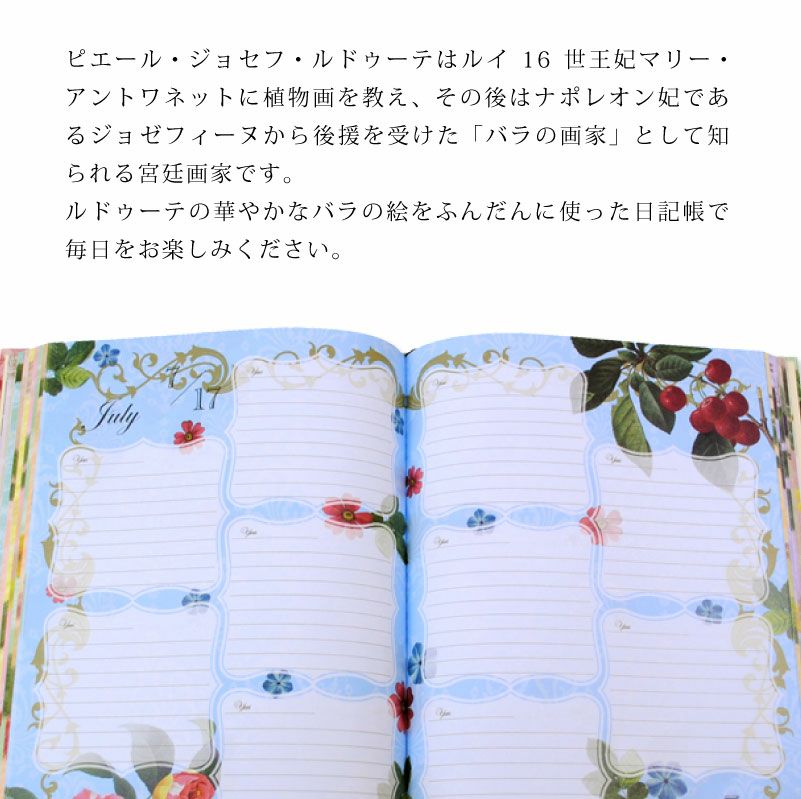 ピエール・ジョセフ・ルドゥーテはルイ 16 世王妃マリー・
アントワネットに植物画を教え、その後はナポレオン妃であ
るジョゼフィーヌから後援を受けた「バラの画家」として知
られる宮廷画家です。
ルドゥーテの華やかなバラの絵をふんだんに使った日記帳で
毎日をお楽しみください。
7/17
July